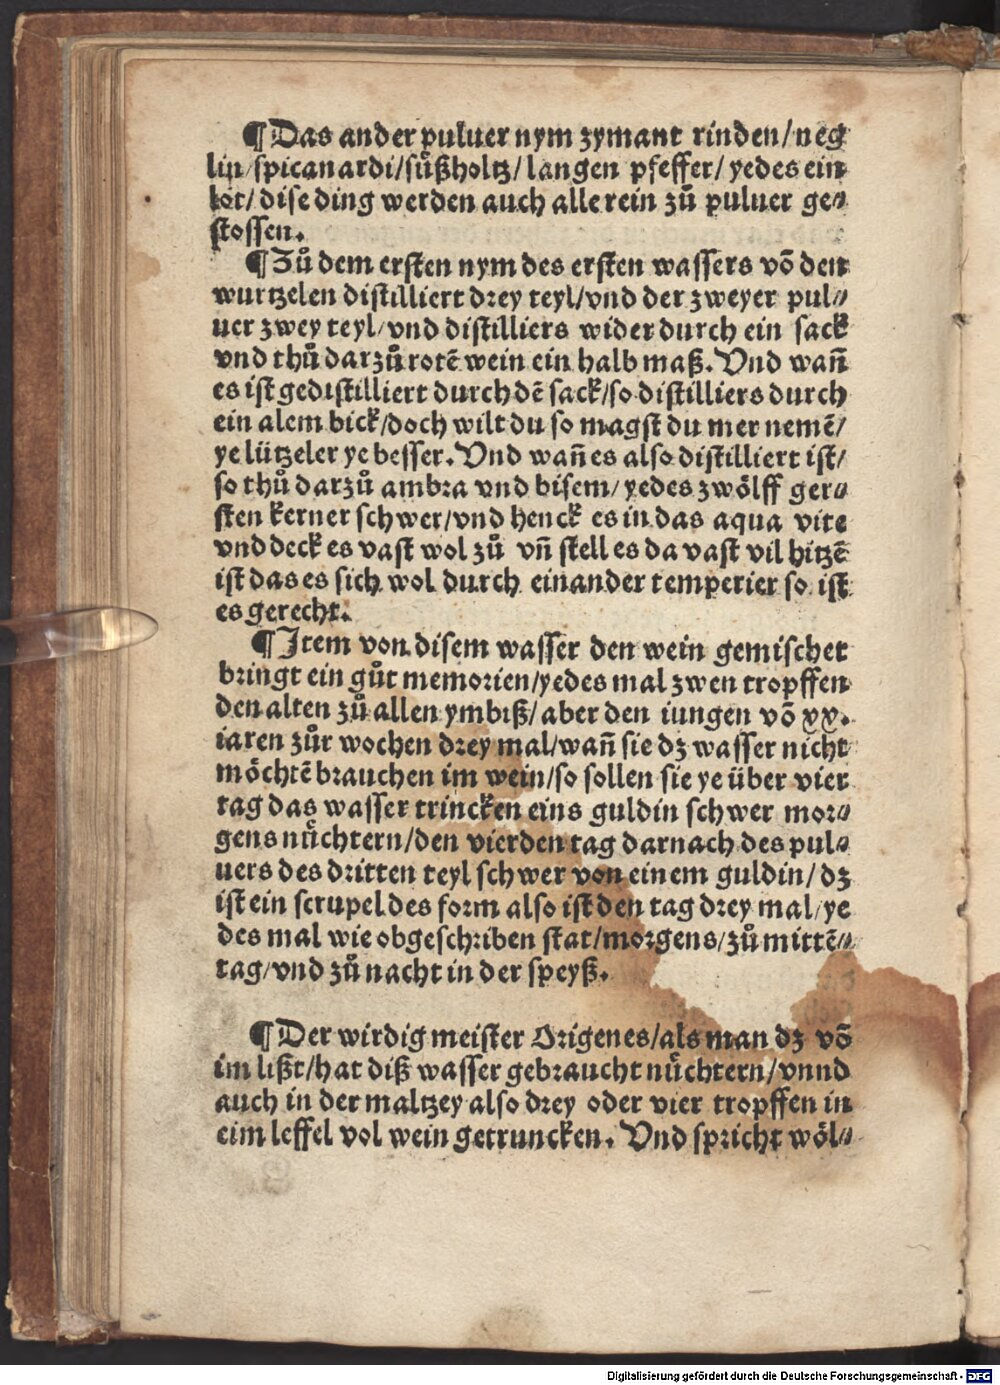 ¶Das ander puluer nym zymant rinden/neg
lin/spicanardi/süßholtz/langen pfeffer/yedes ein
lot/dise ding werden auch alle rein zů puluer ge⸗
stossen.
¶Zů dem ersten nym des ersten wassers võ den
wurtzelen distilliert drey teyl/vnd der zweyer pul⸗
uer zwey teyl/vnd distilliers wider durch ein sack
vnd thů darzů rotẽ wein ein halb maß. Vnd wañ
es ist gedistilliert durch dẽ sack/so distilliers durch
ein alem bick/doch wilt du so magst du mer nemẽ/
ye lützeler ye besser. Vnd wañ es also distilliert ist/
so thů darzů ambra vnd bisem/yedes zwölff ger⸗
sten kerner schwer/vnd henck es in das aqua vite
vnd deck es vast wol zů vñ stell es da vast vil hitzẽ
ist das es sich wol durch einander temperier so ist
es gerecht.
¶Item von disem wasser den wein gemischet
bringt ein gůt memorien/yedes mal zwen tropffen
den alten zů allen ymbiß/aber den iungen võ xx.
iaren zůr wochen drey mal/wañ sie dz wasser nicht
möchtẽ brauchen im wein/so sollen sie ye über vier
tag das wasser trincken eins guldin schwer mor⸗
gens nüchtern/den vierden tag darnach des pul⸗
uers des dritten teyl schwer von einem guldin/dz
ist ein scrupel des form also ist den tag drey mal/ye
des mal wie obgeschriben stat/morgens/zů mittẽ⸗
tag/vnd zů nacht in der speyß.
¶Der wirdig meister Origenes/als man dz võ
im lißt/hat diß wasser gebraucht nüchtern/vnnd
auch in der maltzey also drey oder vier tropffen in
eim leffel vol wein getruncken. Vnd spricht wöl⸗
Digitalisierung gefördert durch die Deutsche Forschungsgemeinschaft - DFG